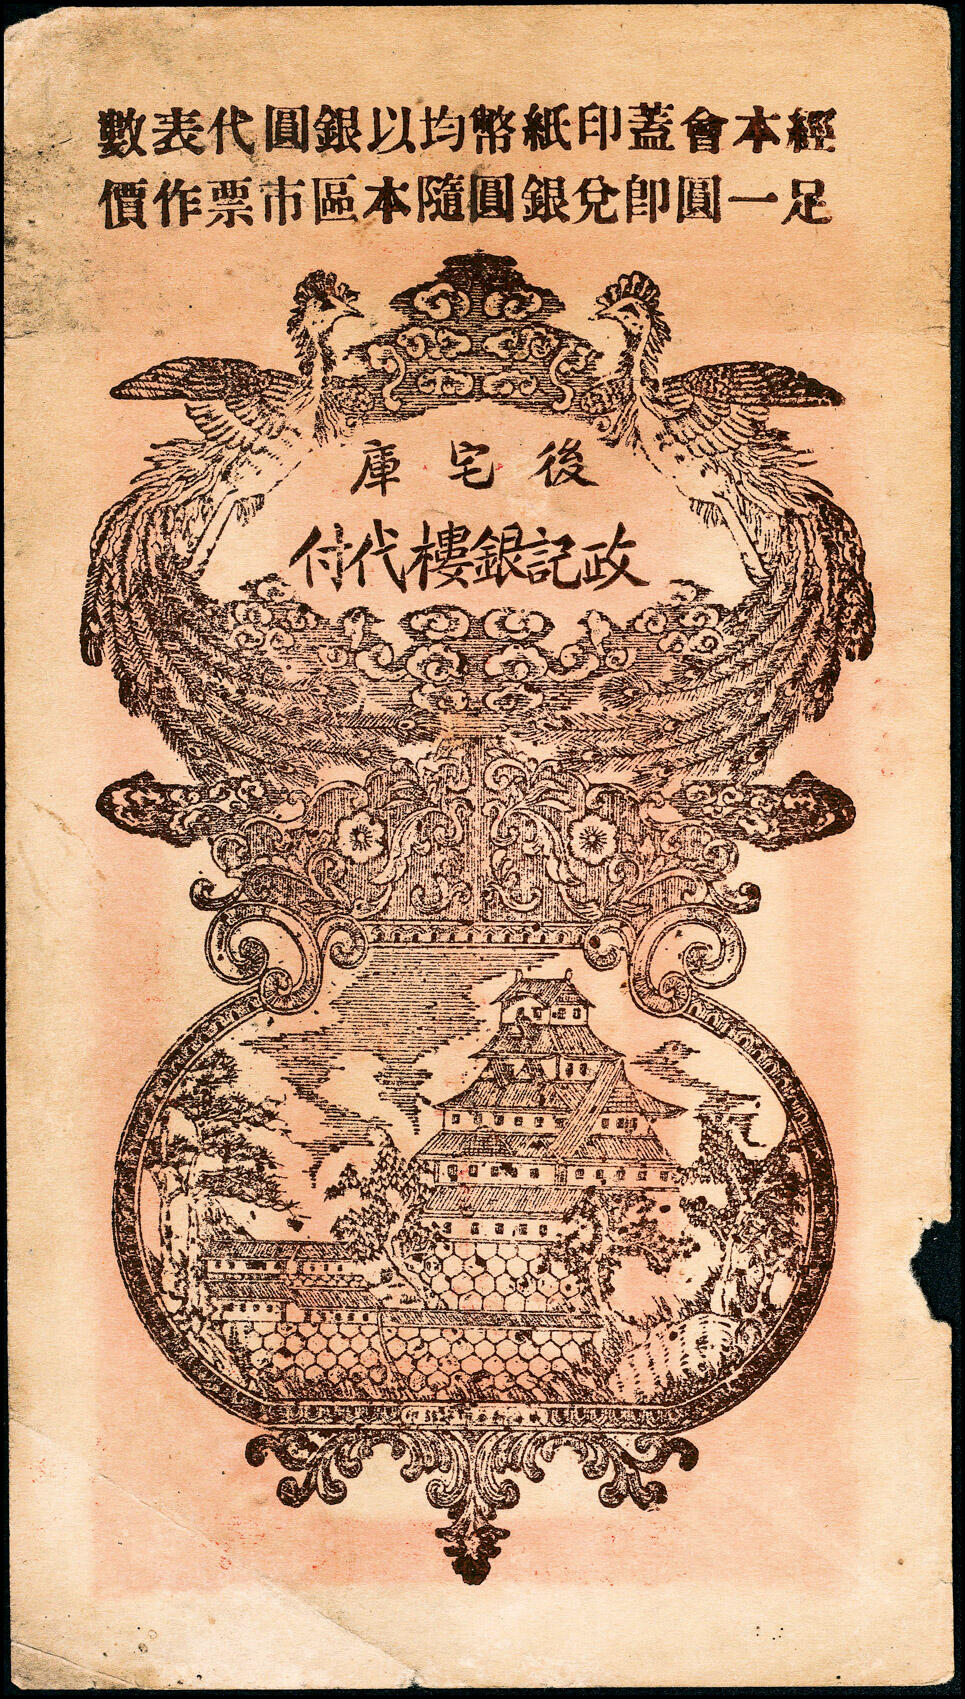 經本會蓋印紙幣均以銀圓代表數
足一圓即兌銀圓隨本區市票作價
後宅庫
政記銀樓代付